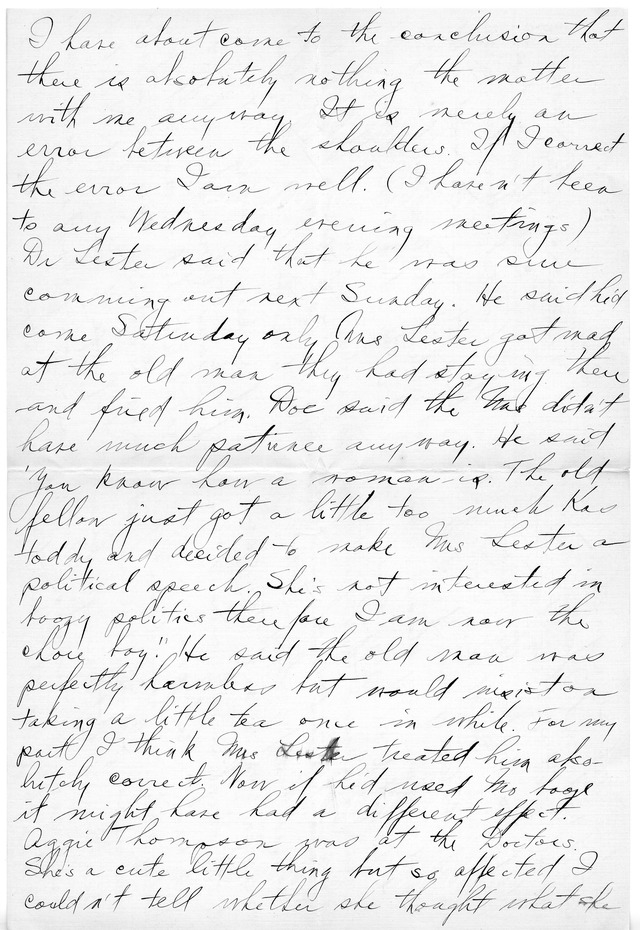 I have about come to the conclusion that
there is absolutely nothing the matter
with me anyway. It is merely an
error between the shoulders. If I correct
the error I am well. (I haven't been
to any Wednesday evening meetings)
Dr Lester said that he was sure
comming out next Sunday. He said he'd
come Saturday only Mrs Lester got mad
at the old man they had staying there
and fired him. Doc said the Mrs didn't
have much patience anyway. He said
"You know how a woman is. The old
fellow just got a little too much Kas
toddy and decided to make Mrs Lester a
political speech. She's not interested in
boozy politics therefore I am now the
chore boy." He said the old man was
perfectly harmless but would insist on
taking a little tea once in while. For my
part I think Mrs Lester treated him abso-
lutely correct. Now if he'd used Mo booze
it might have had a different effect.
Aggie Thompson was at the Doctors.
She's a cute little thing but so affected I
couldn't tell whether she thought what she